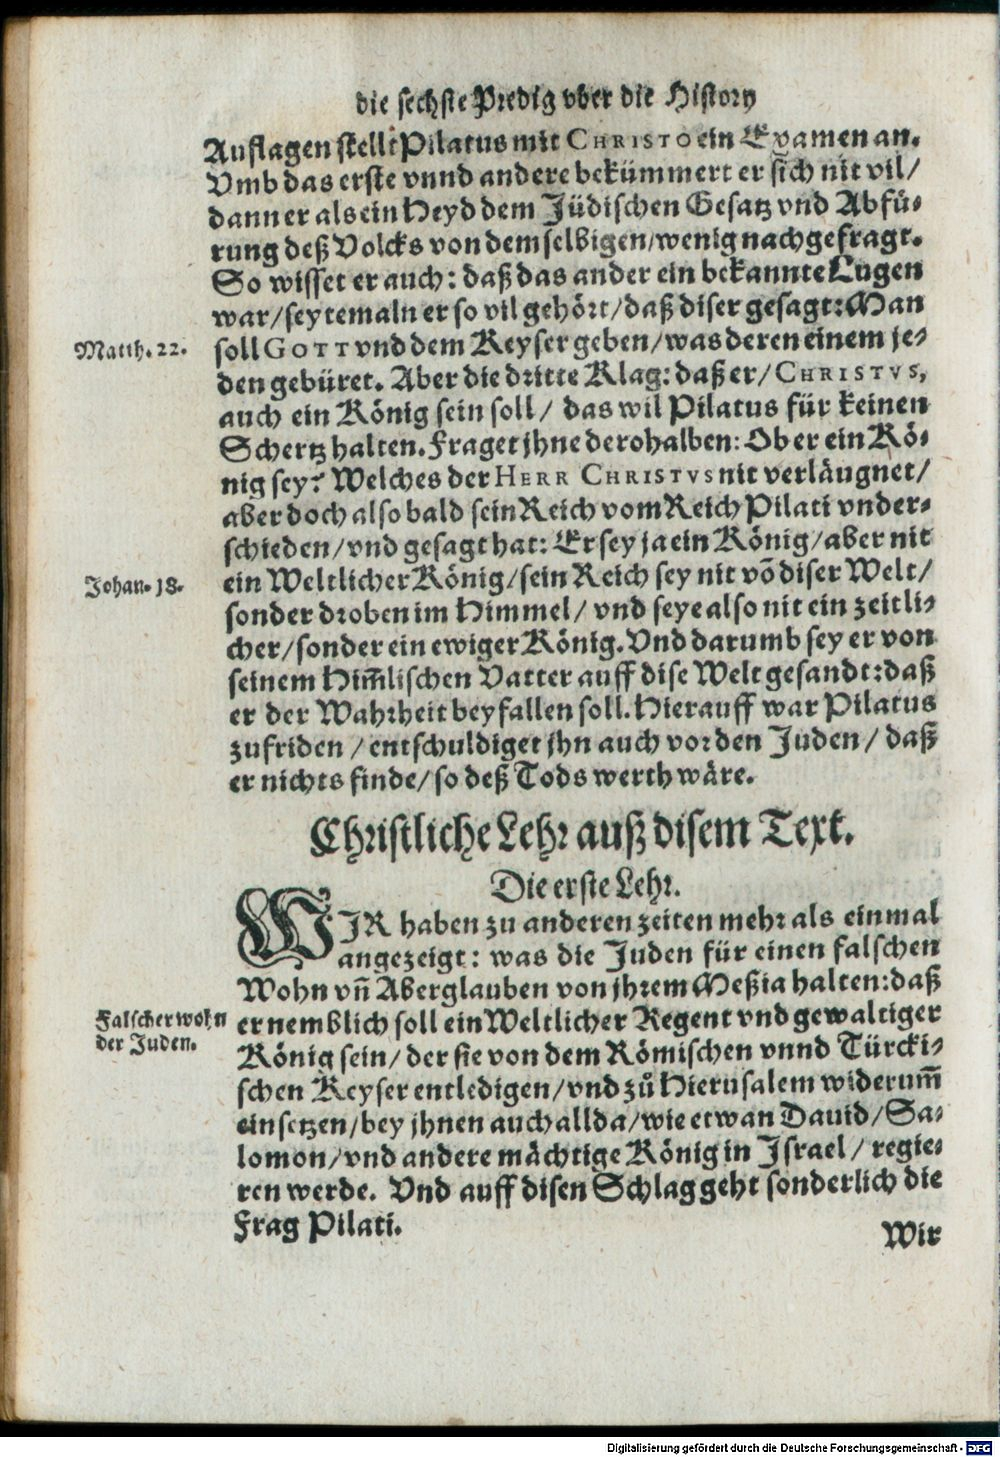 die sechste Predig vber die History
Auflagen stellt Pilatus mit CHRISTO ein Examen an.
Vmb das erste vnnd andere bekümmert er sich nit vil/
dann er als ein Heyd dem Jüdischen Gesatz vnd Abfü-
rung deß Volcks von demselbigen/wenig nachgefragt.
So wisset er auch: daß das ander ein bekannte Lugen
war/seytemaln er so vil gehört/daß diser gesagt: Man
Matth. 22.
soll GOTT vnd dem Keyser geben/was deren einem je-
den gebüret. Aber die dritte Klag: daß er/CHRISTVS,
auch ein König sein soll/ das wil Pilatus für keinen
Schertz halten. Fraget jhne derohalben: Ob er ein Kö-
nig sey? Welches der HERR CHRISTVS nit verläugnet/
aber doch also bald sein Reich vom Reich Pilati vnder-
schieden/vnd gesagt hat: Er sey ja ein König/aber nit
Johan. 18.
ein Weltlicher König/sein Reich sey nit võ diser Welt/
sonder droben im Himmel/ vnd seye also nit ein zeitli-
cher/sonder ein ewiger König. Vnd darumb sey er von
seinem Him̃lischen Vatter auff dise Welt gesandt: daß
er der Wahrheit beyfallen soll. Hierauff war Pilatus
zufriden /entschuldiget jhn auch vor den Juden/ daß
er nichts finde/so deß Tods werth wäre.
Christliche Lehr auß disem Text.
Die erste Lehr.
WJR haben zu anderen zeiten mehr als einmal
angezeigt: was die Juden für einen falschen
Wohn vñ Aberglauben von jhrem Meßia halten: daß
Falscher wohn
der Juden.
er nemblich soll ein Weltlicher Regent vnd gewaltiger
König sein/ der sie von dem Römischen vnnd Türcki-
schen Keyser entledigen/vnd zů Hierusalem widerum̃
einsetzen/bey jhnen auch allda/wie etwan Dauid/Sa-
lomon/vnd andere mächtige König in Jsrael/ regie-
ren werde. Vnd auff disen Schlag geht sonderlich die
Frag Pilati.
Wir
Digitalisierung gefördert durch die Deutsche Forschungsgemeinschaft - DFG